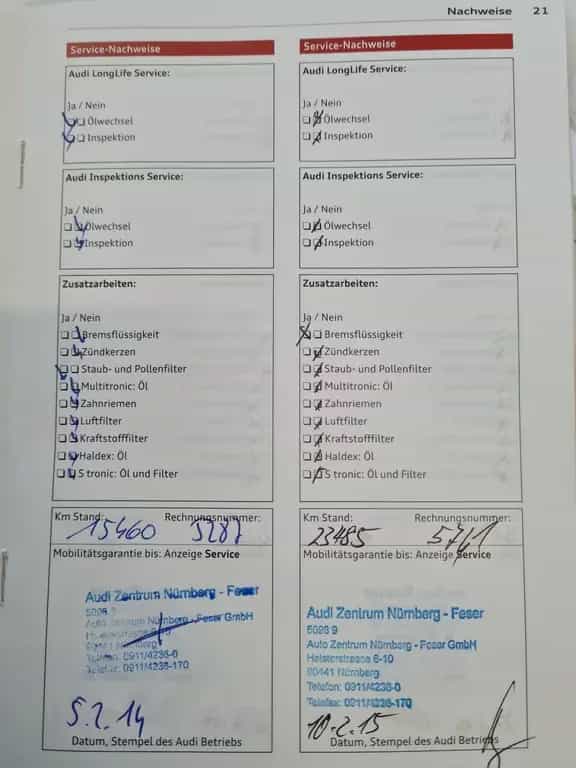 Nachweise 21
Service-Nachweise
Audi LongLife Service:
Ja / Nein
Ölwechsel
Inspektion
Audi Inspektions Service:
Ja / Nein
Ölwechsel
Inspektion
Zusatzarbeiten:
Ja / Nein
Bremsflüssigkeit
Zündkerzen
Staub- und Pollenfilter
Multitronic: Öl
Zahnriemen
Luftfilter
Kraftstofffilter
Haldex: Öl
S tronic: Öl und Filter
Km Stand: Rechnungsnummer:
15460 5287
Mobilitätsgarantie bis: Anzeige Service
Audi Zentrum Nürnberg - Feser
5098 9
Auto Zentrum Nürnberg - Feser GmbH
Nürnberg
Telefon: 0911/4236-0
Telefax: 0911/4236-170
5.2.14
Datum, Stempel des Audi Betriebs
Service-Nachweise
Audi LongLife Service:
Ja / Nein
Ölwechsel
Inspektion
Audi Inspektions Service:
Ja / Nein
Ölwechsel
Inspektion
Zusatzarbeiten:
Ja / Nein
Bremsflüssigkeit
Zündkerzen
Staub- und Pollenfilter
Multitronic: Öl
Zahnriemen
Luftfilter
Kraftstofffilter
Haldex: Öl
S tronic: Öl und Filter
Km Stand: Rechnungsnummer:
23485 5761
Mobilitätsgarantie bis: Anzeige Service
Audi Zentrum Nürnberg - Feser
5098 9
Auto Zentrum Nürnberg - Feser GmbH
Heisterstrasse 6-10
90441 Nürnberg
Telefon: 0911/4236-0
Telefax: 0911/4236-170
10.2.15
Datum, Stempel des Audi Betriebs